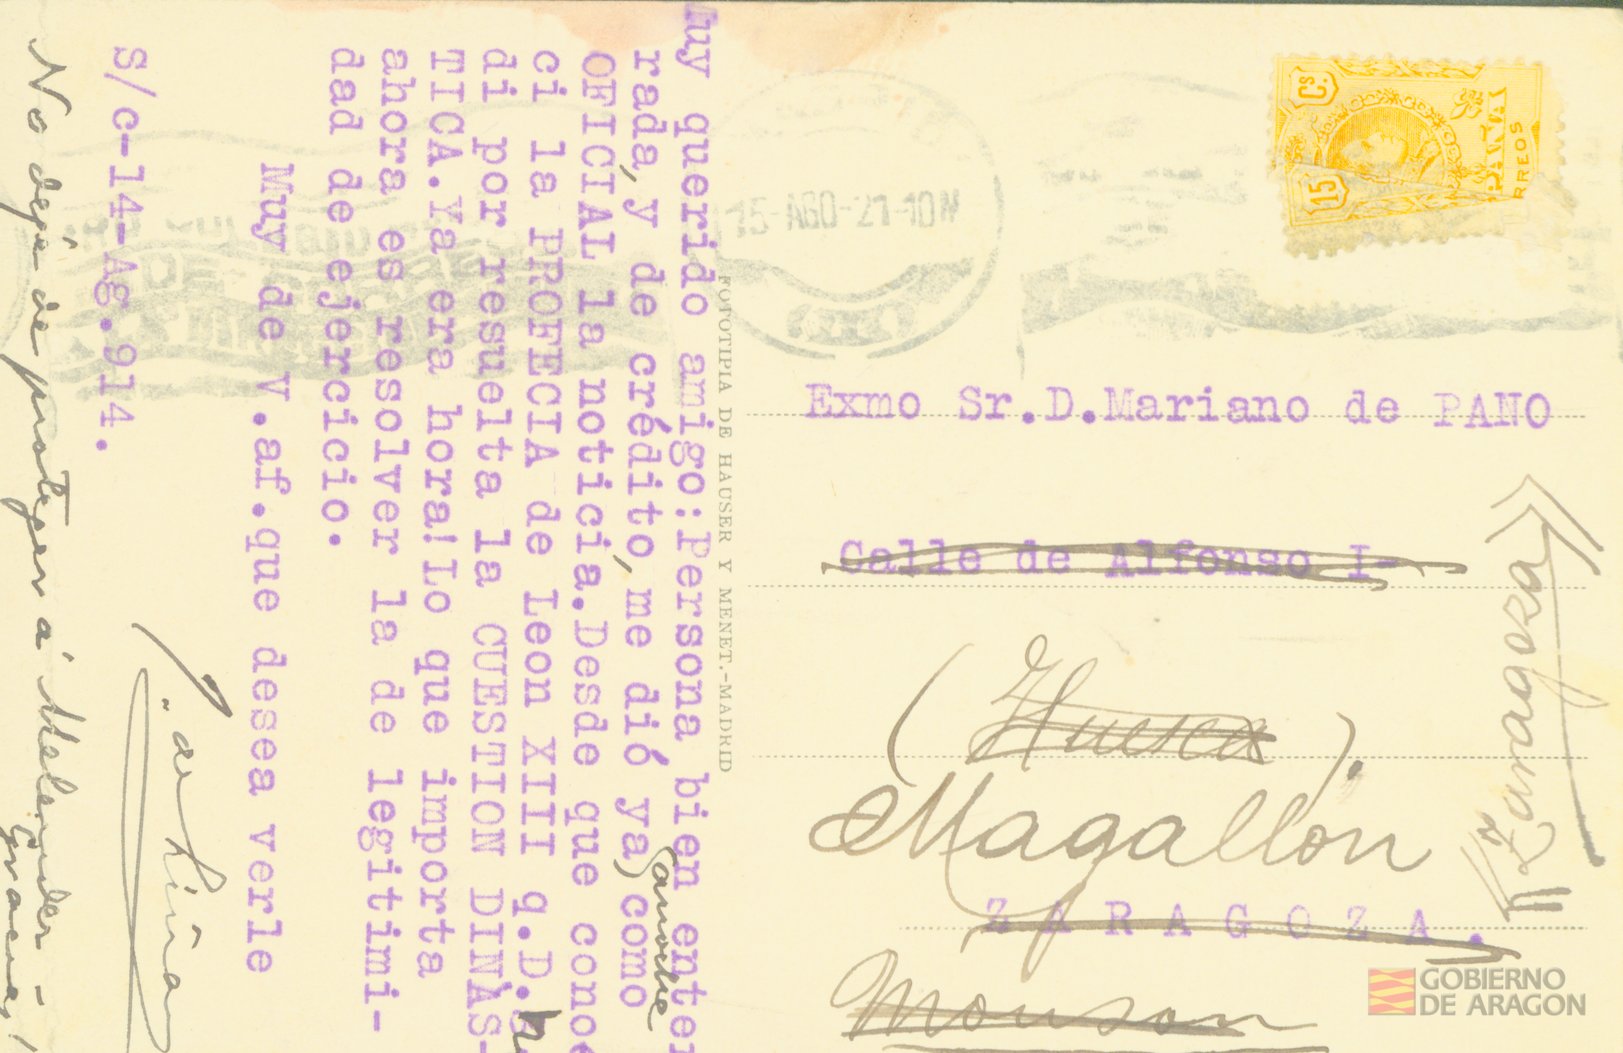 muy querido amigo:Persona bien ente
rada,y de crédito,me dió ya,como
anoche
OFICIAL la noticia.Desde que cono
ci la PROFECIA de Leon XIII q.D.
di por resuelta la CUESTION DINÁS-
TICA.Ya era hora!Lo que importa
ahora es resolver la de legitimi-
dad de ejercicio.
Muy de V.af.que desea verle
S/c-14-Ag.914.
No deje de proteger a Melender -
gracias!
FOTOTIPIA DE HAUSER Y MENET.-MADRID
15 Cs
CORREOS
15-AGO-21-10M
Exmo Sr.D.Mariano de PANO
Calle de Alfonso I-
(Huesca).
Magallón
ZARAGOZA.
Monson
(Zaragoza)
GOBIERNO
DE ARAGON